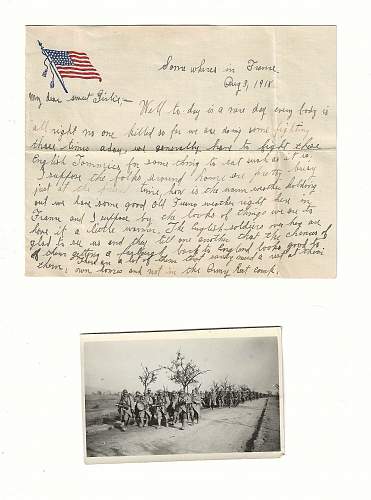 Some where in France
Aug 3, 1918
My dear sweet Girlie, -
Well to day is a rare day every body is
all right no one killed so far we are doing some fighting
three times a day, we generally have to fight those
English Tommies for some thing to eat such as it is.
I suppose the folks around home are pretty busy
just at the time, how is the warm weather holding
out we have some good old weather right here in
France and I suppose by the looks of things we are to
have it a little warmer. The English soldiers we hey are
glad to see us and they tell one another that the chances of
them getting a furlough back to England looks good to
them, and a lot of them that surely need a rest at their
own homes and not in the Army Rest camp.